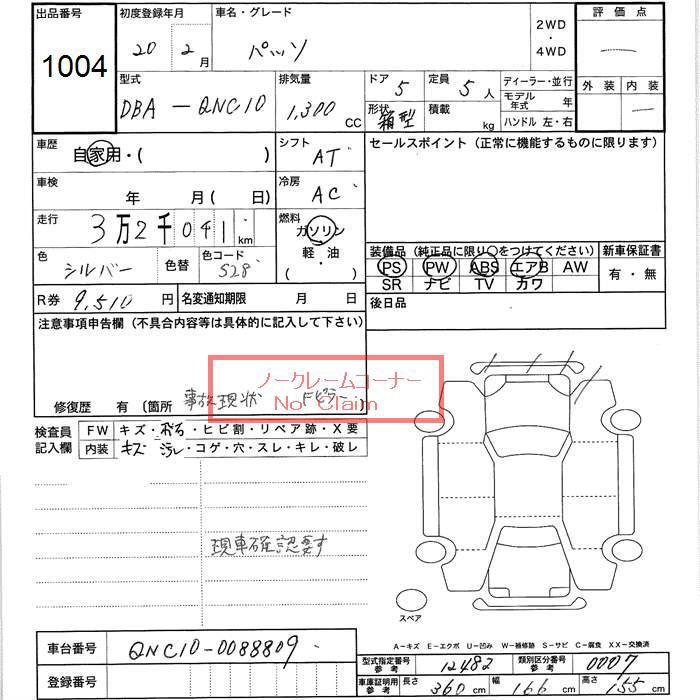 出品番号 初度登録年月 車名・グレード 2WD ・ 4WD 評価点
1004 20 2月 パッソ
外装 内装
型式 排気量 ドア 5 定員 5人 ディーラー・並行
DBA-QNC10 1,300cc 形状 箱型 積載 kg モデル年式 年
ハンドル 左・右
車歴 自家用・( ) シフト AT セールスポイント (正常に機能するものに限ります)
車検 年 月 (日) 冷房 AC
走行 3万2千041km 燃料 ガソリン 軽・油 ( )
色 シルバー 色替 色コード S28
装備品 (純正品に限り○をつけてください) 新車保証書
PS PW ABS エアB AW 有・無
SR ナビ TV カワ
R券 9,510円 名変通知期限 月 日 後日品
注意事項申告欄 (不具合内容等は具体的に記入して下さい)
ノークレームコーナー
No Claim
修復歴 有 (箇所 事故現状 Fピラー )
検査員記入欄 FW キズ・飛石・ヒビ割・リペア跡・X要
内装 キズ・汚レ・コゲ・穴・スレ・キレ・破レ
現車確認要す
スペア
A-キズ E-エクボ U-凹み W-補修跡 S-サビ C-腐食 XX-交換済
車台番号 QNC10-0088809
型式指定番号 参考 12482 類別区分番号 参考 0007
登録番号
車庫証明用 参考 長さ 360cm 幅 166cm 高さ 155cm